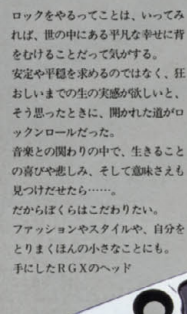 ロックをやるってことは、いってみ
れば、世の中にある平凡な幸せに背
をむけることだって気がする。
安定や平穏を求めるのではなく、狂
おしいまでの生の実感が欲しいと、
そう思ったときに、開かれた道がロ
ックンロールだった。
音楽との関わりの中で、生きること
の喜びや悲しみ、そして意味さえも
見つけだせたら……。
だからぼくらはこだわりたい。
ファッションやスタイルや、自分を
とりまくほんの小さなことにも。
手にしたRGXのヘッド